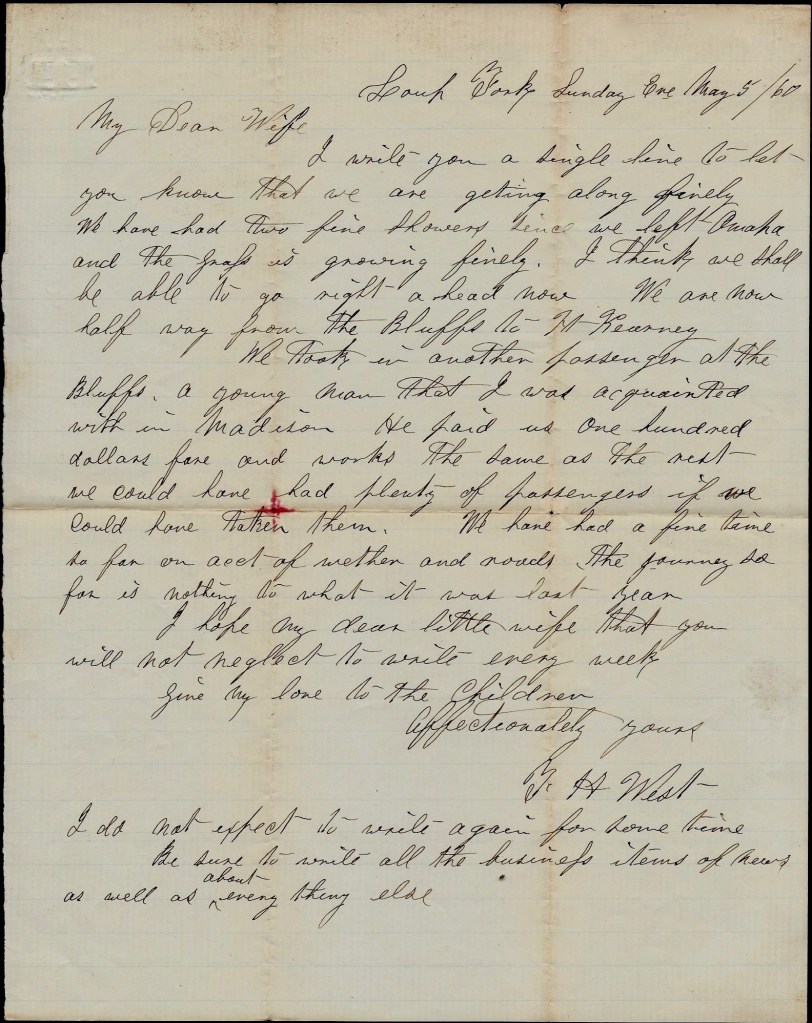 Loup Fork Sunday Eve May 5/60
My Dear Wife
I write you a single line to let
you know that we are geting along finely
We have had two fine showers since we left Omaha
and the Grass is growing finely. I think we shall
be able to go right a head now We are now
half way from the Bluffs to Ft Kearney
We took in another passenger at the
Bluffs. a young man that I was acquainted
with in Madison He paid us One hundred
dollars fare and works the same as the rest
we could have had plenty of passengers if we
could have taken them. We have had a fine time
so far on acct of wether and roads. The journey so
far is nothing to what it was last year
I hope my dear little wife that you
will not neglect to write every week
Give my love to the Children
Affectionately yours
F. H West
I do not expect to write again for some time
Be sure to write all the business items of news
as well as about every thing else